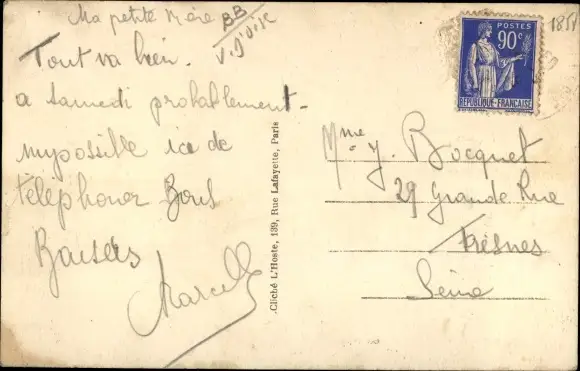 Ma petite Mère
BB
V.D'OISE
Tout va bien.
a Samedi probablement.
impossible ici de
téléphoner Bons
Baisers
Marcel
Cliché L'Hoste, 139, Rue Lafayette, Paris
1851
POSTES
90c
REPUBLIQUE-FRANÇAISE
Mme J. Bocquet
29 Grande Rue
Fresnes
Seine